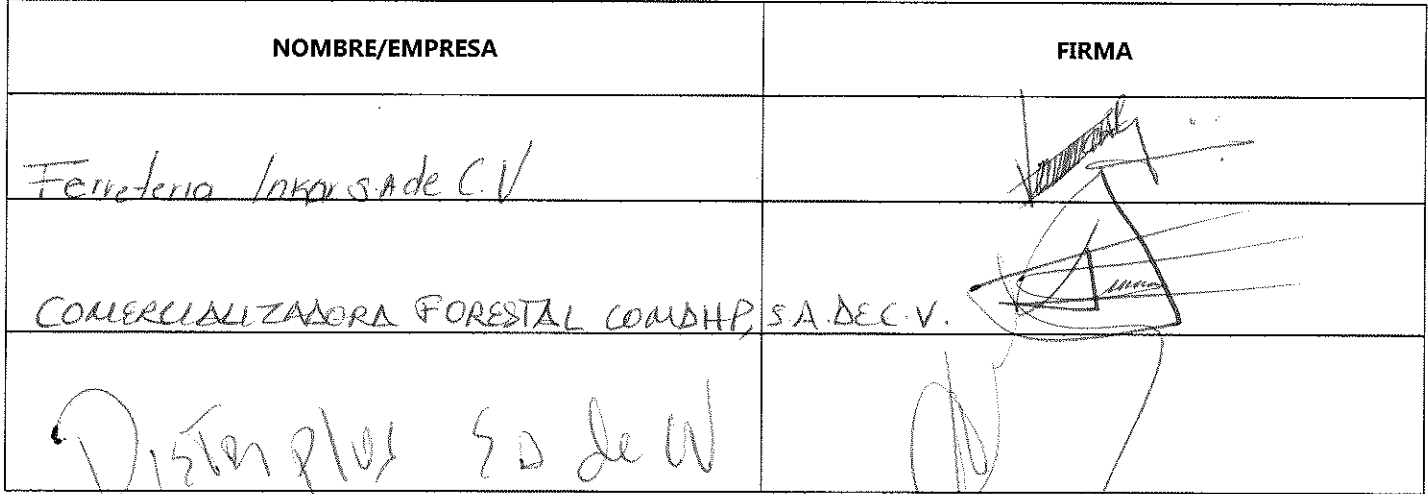 NOMBRE/EMPRESA FIRMA
Ferreteria Inkor S.A de C.V
COMERCIALIZADORA FORESTAL COMDHP, S.A. DE C.V.
Distriplus SA de CV